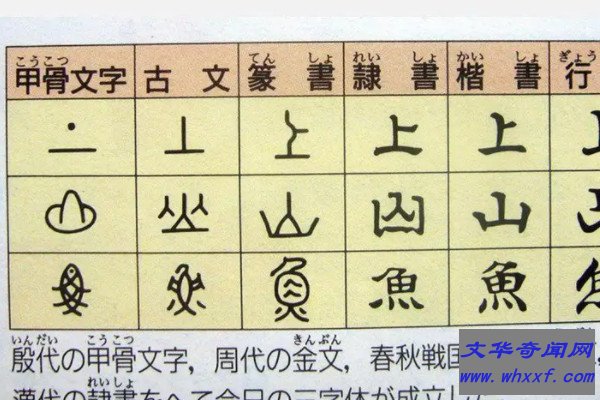 こうこつ てん しょ れい しょ かい しょ ぎょう
甲骨文字 古文 篆書 隷書 楷書 行
上 上 上
山 山
魚 魚 魚
いんだい こうこつ きんぶん
殷代の甲骨文字，周代の金文，春秋戦国
れいしょ
漢代の隷書をへて今日の三字体が成立した
文华奇闻网
www.whxxf.com